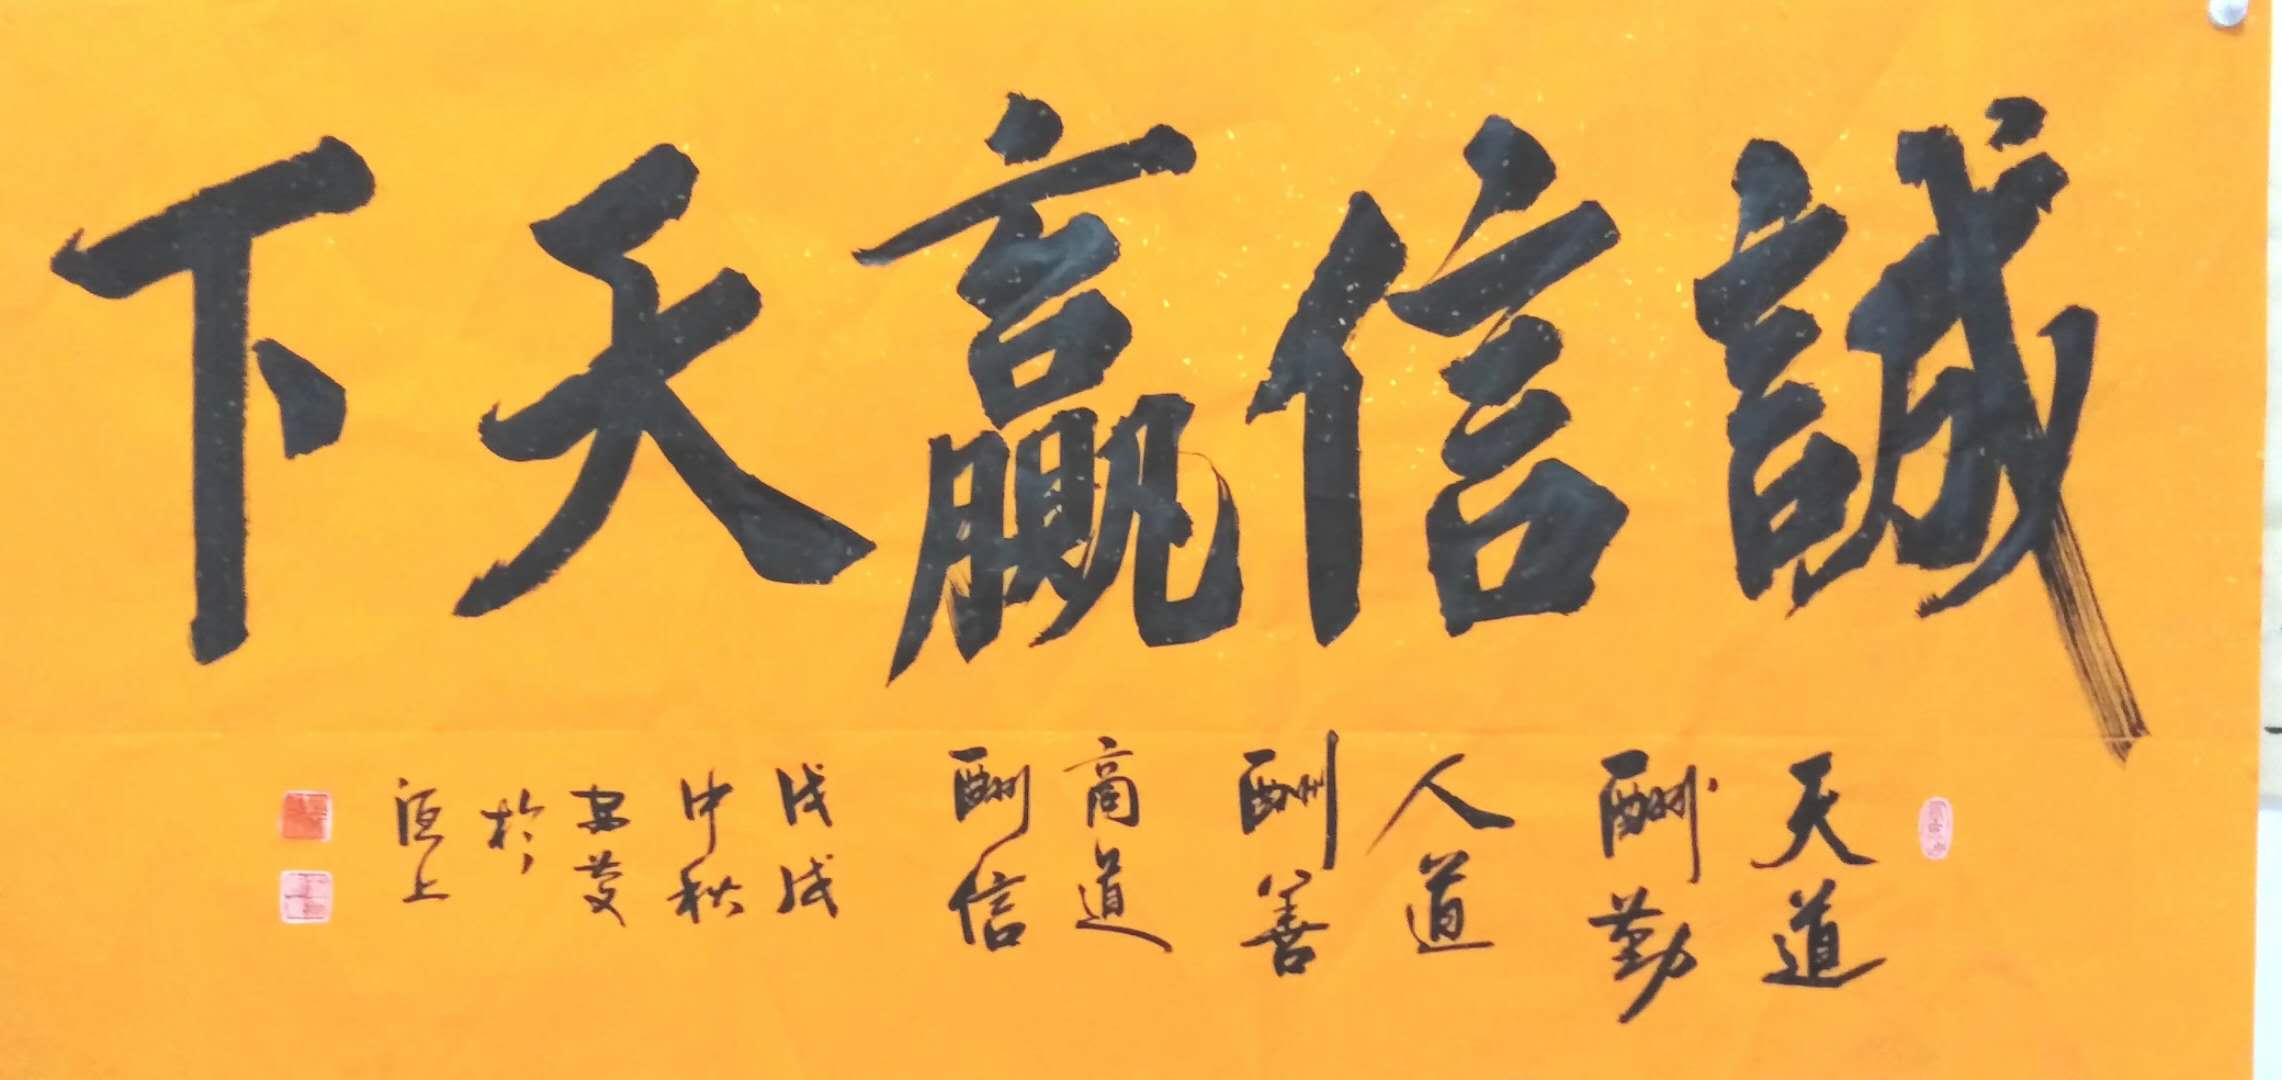 誠信贏天下
天道
酬勤
人道
酬善
商道
酬信
戊戌
中秋
於
洹上